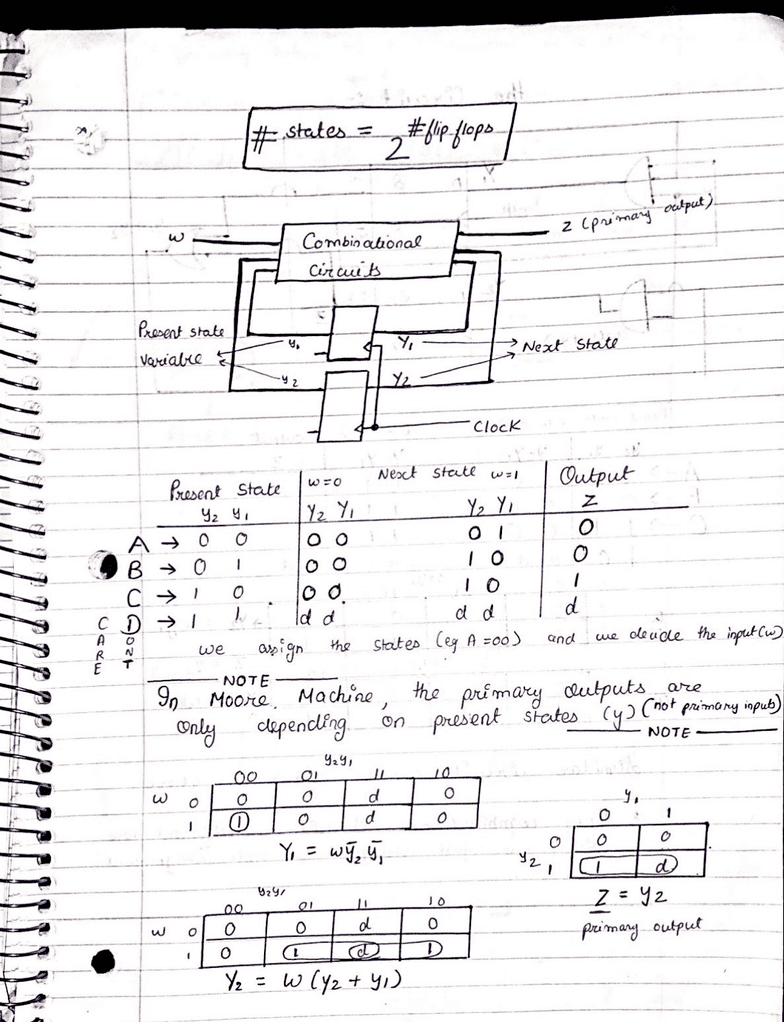 # states = 2^#flip flops
w
Combinational
Circuits
Z (primary output)
Present state
Variable
y₁
Y₁
Next State
y₂
Y₂
Clock
Present State
w=0
Next State w=1
Output
y₂ y₁
Y₂ Y₁
Y₂ Y₁
Z
A → 0 0 0 0 0 1 0
B → 0 1 0 0 1 0 0
C → 1 0 0 0 1 0 1
D → 1 1 d d d d d
DONT
CARE
we assign the states (eg A = 00) and we decide the input (w)
NOTE
In Moore Machine, the primary outputs are
only depending on present states (y) (not primary inputs)
NOTE
y₂y₁
00 01 11 10
w 0 0 0 d 0
1 1 0 d 0
Y₁ = wȳ₂ȳ₁
y₁
0 1
y₂ 0 0 0
1 1 d
Z = y₂
primary output
y₂y₁
00 01 11 10
w 0 0 0 d 0
1 0 1 d 1
Y₂ = w (y₂ + y₁)